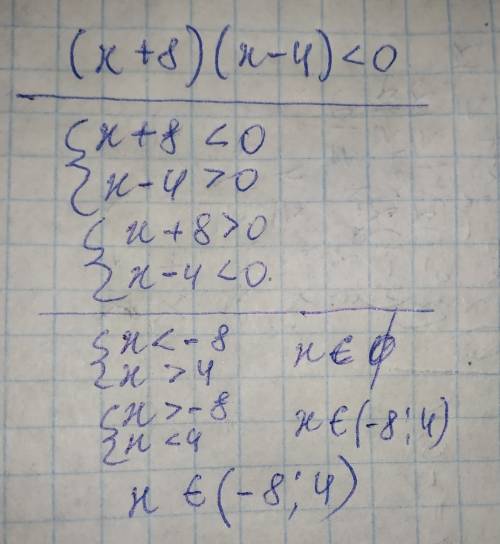 (x+8)(x-4)<0
{x+8<0
{x-4>0
{x+8>0
{x-4<0.
{x<-8 x∈∅
{x>4
{x>-8 x∈(-8;4)
{x<4
x∈(-8;4)